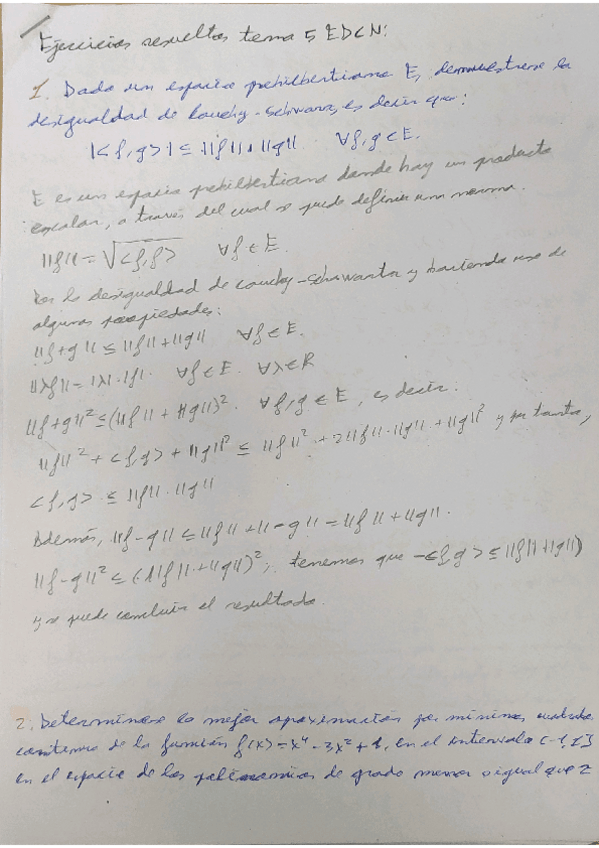 Ejercicios resueltos tema 5 EDCN:
1. Dado un espacio prehilbertiano E, demuestrese la
desigualdad de Cauchy-Schwarz, es decir que:
|<f,g>| ≤ ||f|| + ||g|| ∀f,g ∈ E.
E es un espacio prehilbertiano donde hay un producto
escalar, a través del cual se puede definir una norma.
||f|| = √<f,f> ∀f ∈ E.
Por la desigualdad de Cauchy-Schwartz y haciendo uso de
algunas propiedades:
||f+g|| ≤ ||f|| + ||g|| ∀f ∈ E.
||λf|| = |λ|·|f|. ∀f ∈ E. ∀λ ∈ R
||f+g||² ≤ (||f|| + ||g||)². ∀f,g ∈ E, es decir:
||f||² + <f,g> + ||g||² ≤ ||f||² + 2||f||·||g|| + ||g||² y por tanto,
<f,g> ≤ ||f||·||g||
Además, ||f-g|| ≤ ||f|| + ||-g|| = ||f|| + ||g||.
||f-g||² ≤ (||f|| + ||g||)²; tenemos que -<f,g> ≤ ||f|| ||g||)
y se puede concluir el resultado.
2. Determínese la mejor aproximación por mínimos cuadrados
continua de la función f(x) = x⁴ - 3x² + 1, en el intervalo [-1,1]
en el espacio de los polinomios de grado menor o igual que 2